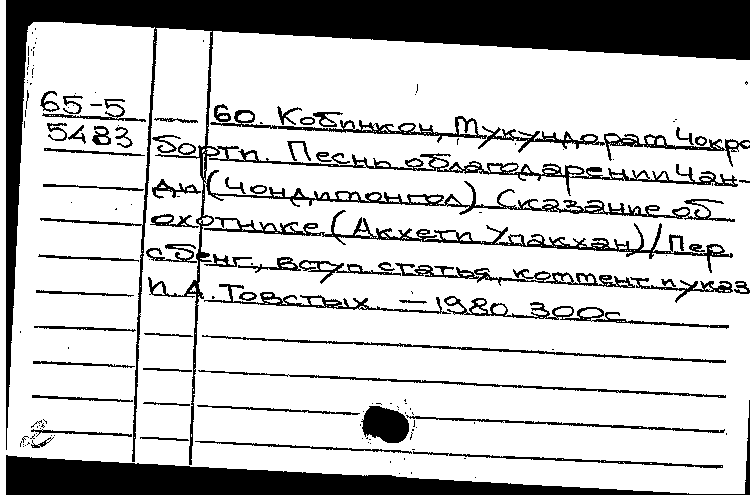 65-5
5483
60. Кобинкон, Мукундорам Чокро
борти. Песнь о благодарении Чан-
ди (Чондимонгол). Сказание об
охотнике (Акхети Упакхан) / Пер.
с бенг., вступ. статья, коммент. и указ
И.А. Товстых — 1980. 300с
2